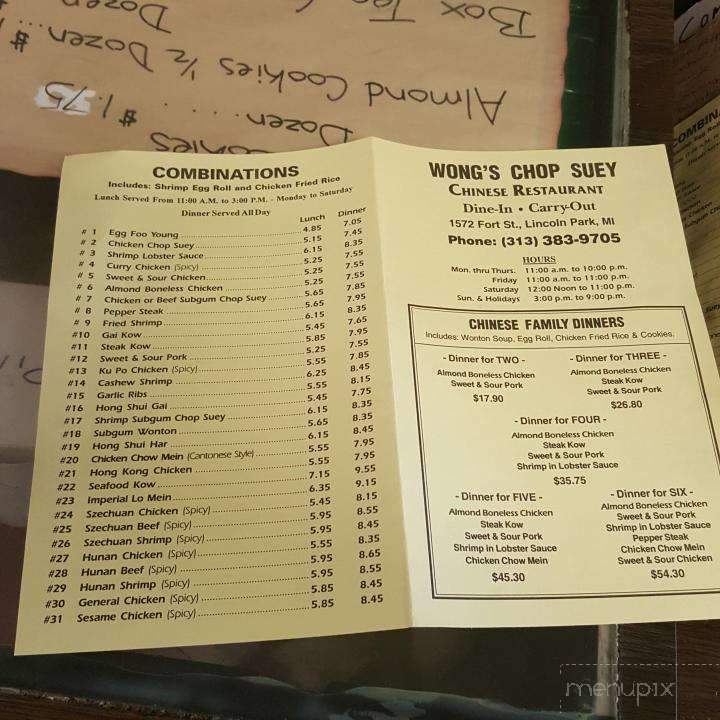 Box Tea
Dozen
Almond Cookies 1/2 Dozen..$
Dozen.......$1.75
COMBINATIONS
Includes: Shrimp Egg Roll and Chicken Fried Rice
Lunch Served From 11:00 A.M. to 3:00 P.M. - Monday to Saturday
Dinner Served All Day
Lunch Dinner
# 1 Egg Foo Young 4.85 7.05
# 2 Chicken Chop Suey 5.15 7.45
# 3 Shrimp Lobster Sauce 6.15 8.35
# 4 Curry Chicken (Spicy) 5.25 7.55
# 5 Sweet & Sour Chicken 5.25 7.55
# 6 Almond Boneless Chicken 5.25 7.55
# 7 Chicken or Beef Subgum Chop Suey 5.65 7.85
# 8 Pepper Steak 5.65 7.95
# 9 Fried Shrimp 6.15 8.35
#10 Gai Kow 5.45 7.65
#11 Steak Kow 5.85 7.95
#12 Sweet & Sour Pork 5.25 7.55
#13 Ku Po Chicken (Spicy) 5.55 7.85
#14 Cashew Shrimp 6.25 8.45
#15 Garlic Ribs 5.55 8.15
#16 Hong Shui Gai 5.45 7.75
#17 Shrimp Subgum Chop Suey 6.15 8.35
#18 Subgum Wonton 5.65 8.35
#19 Hong Shui Har 6.15 8.45
#20 Chicken Chow Mein (Cantonese Style) 5.55 7.95
#21 Hong Kong Chicken 5.55 7.95
#22 Seafood Kow 7.15 9.55
#23 Imperial Lo Mein 6.35 9.15
#24 Szechuan Chicken (Spicy) 5.45 8.15
#25 Szechuan Beef (Spicy) 5.95 8.55
#26 Szechuan Shrimp (Spicy) 5.95 8.45
#27 Hunan Chicken (Spicy) 5.55 8.35
#28 Hunan Beef (Spicy) 5.95 8.65
#29 Hunan Shrimp (Spicy) 5.95 8.55
#30 General Chicken (Spicy) 5.85 8.45
#31 Sesame Chicken (Spicy) 5.85 8.45
WONG'S CHOP SUEY
CHINESE RESTAURANT
Dine-In • Carry-Out
1572 Fort St., Lincoln Park, MI
Phone: (313) 383-9705
HOURS
Mon. thru Thurs. 11:00 a.m. to 10:00 p.m.
Friday 11:00 a.m. to 11:00 p.m.
Saturday 12:00 Noon to 11:00 p.m.
Sun. & Holidays 3:00 p.m. to 9:00 p.m.
CHINESE FAMILY DINNERS
Includes: Wonton Soup, Egg Roll, Chicken Fried Rice & Cookies.
- Dinner for TWO -
Almond Boneless Chicken
Sweet & Sour Pork
$17.90
- Dinner for THREE -
Almond Boneless Chicken
Steak Kow
Sweet & Sour Pork
$26.80
- Dinner for FOUR -
Almond Boneless Chicken
Steak Kow
Sweet & Sour Pork
Shrimp in Lobster Sauce
$35.75
- Dinner for FIVE -
Almond Boneless Chicken
Steak Kow
Sweet & Sour Pork
Shrimp in Lobster Sauce
Chicken Chow Mein
$45.30
- Dinner for SIX -
Almond Boneless Chicken
Sweet & Sour Pork
Shrimp in Lobster Sauce
Pepper Steak
Chicken Chow Mein
Sweet & Sour Chicken
$54.30
menupix